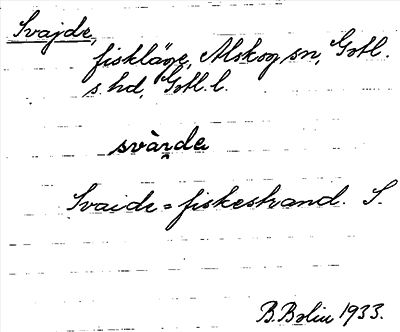 Svajde,
fiskläge, Alskog sn, Gotl.
s. hd, Gotl. l.
svài̯de
Svaide = fiskestrand. S.
B. Bolin 1933.